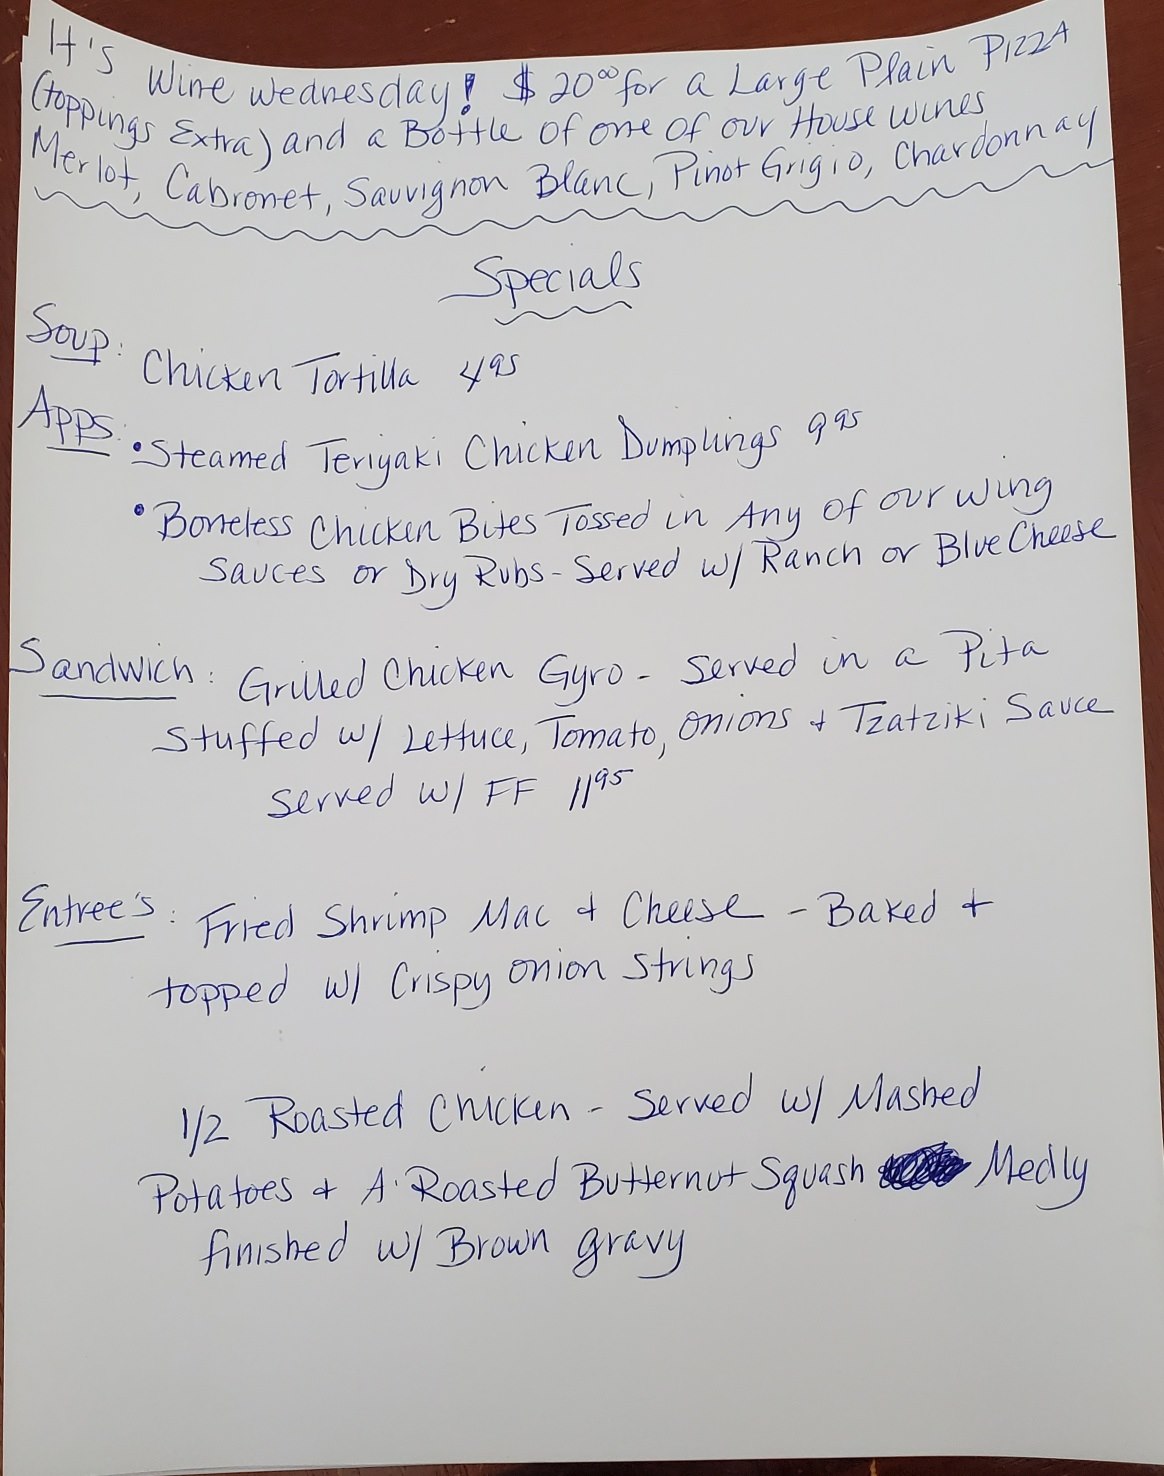 It's Wine Wednesday! $20⁰⁰ for a Large Plain Pizza
(toppings Extra) and a Bottle of one of our House wines
Merlot, Cabronet, Sauvignon Blanc, Pinot Grigio, Chardonnay
Specials
Soup: Chicken Tortilla 4⁹⁵
Apps: • Steamed Teriyaki Chicken Dumplings 9⁹⁵
• Boneless Chicken Bites Tossed in Any of our wing
Sauces or Dry Rubs - Served w/ Ranch or Blue Cheese
Sandwich: Grilled Chicken Gyro - Served in a Pita
Stuffed w/ Lettuce, Tomato, onions + Tzatziki Sauce
Served w/ FF 11⁹⁵
Entree's: Fried Shrimp Mac + Cheese - Baked +
topped w/ Crispy onion Strings
1/2 Roasted Chicken - Served w/ Mashed
Potatoes + A Roasted Butternut Squash Medly
finished w/ Brown gravy